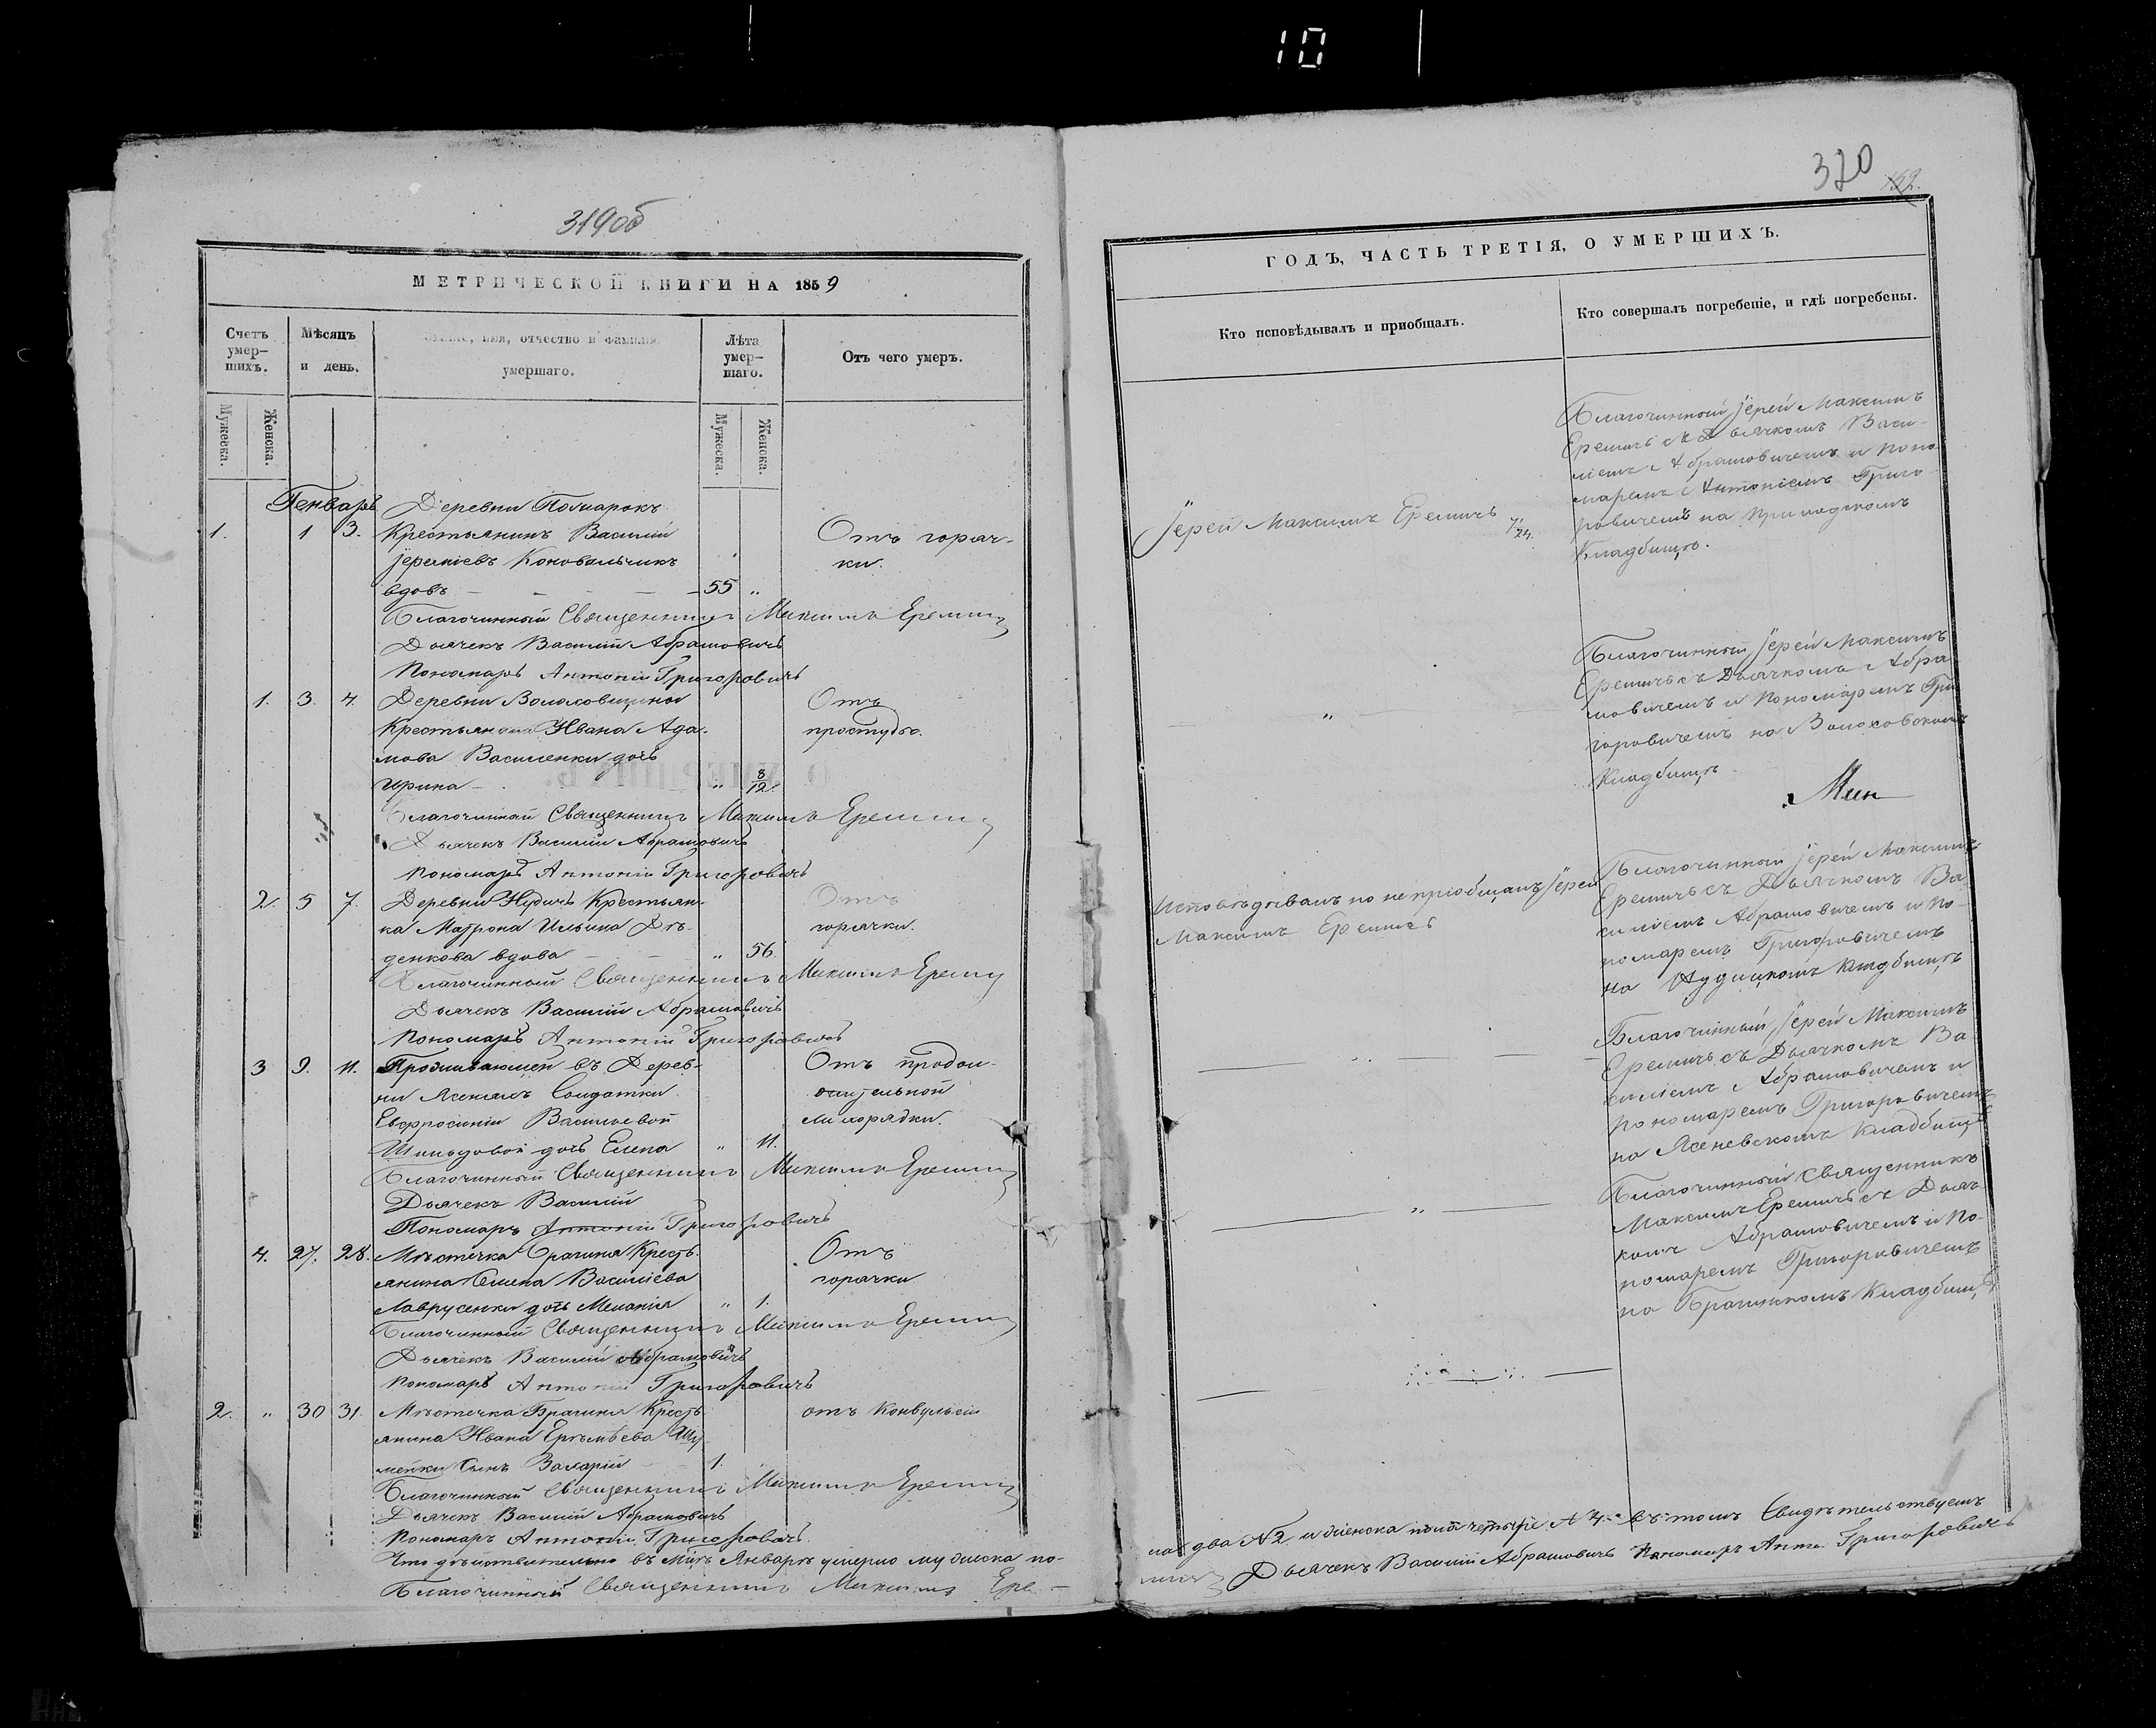 10
319об
МЕТРИЧЕСКОЙ КНИГИ НА 1859
Счетъ умер-шихъ.
Мѣсяцъ и день.
имя, отчество и фамилія умершаго.
Лѣта умер-шаго.
Отъ чего умеръ.
Мужеска.
Женска.
Мужеска.
Женска.
Генварь
Деревни
1. 1 3. Крестьянинъ Василій Отъ горяч-
Іереміевъ Коновальчикъ ки.
вдовъ 55 "
Благочинный Священникъ Максимъ Еремичъ
Дьячекъ Василій Абрамовичъ
Пономарь Антоній Григоровичъ
1. 3. 4. Деревни Волоховщины Отъ
Крестьянина Ивана Ада- простуды.
мова Василенки дочь
Ирина " 8/12.
Благочинный Священникъ Максимъ Еремичъ
Дьячекъ Василій Абрамовичъ
Пономарь Антоній Григоровичъ
2. 5 7. Деревни Нудичъ Крестьян- Отъ
ка Матрона Ильина Дѣ- горячки.
денкова вдова " 56.
Благочинный Священникъ Максимъ Еремичъ
Дьячекъ Василій Абрамовичъ
Пономарь Антоній Григоровичъ
3 9. 11. Проживающей въ Дерев- Отъ продол-
ни Солдатки жительной
Евфросиніи Васильевой лихорадки.
дочь Елена " 11.
Благочинный Священникъ Максимъ Еремичъ
Дьячекъ Василій
Пономарь Антоній Григоровичъ
4. 27. 28. Мѣстечка Брагина Кресть- Отъ
янина Семена Василіева горячки
Лаврусенки дочь Меланія " 1.
Благочинный Священникъ Максимъ Еремичъ
Дьячекъ Василій Абрамовичъ
Пономарь Антоній Григоровичъ
2. " 30 31. Мѣстечка Брагина Кресть- отъ Конвульсіи
янина Ивана
мейки сынъ Валарій 1.
Благочинный Священникъ Максимъ Еремичъ
Дьячекъ Василій Абрамовичъ
Пономарь Антоній Григоровичъ
Что дѣйствительно въ М-цѣ Январѣ умерло мужеска по-
Благочинный Священникъ Максимъ Ере-
320
152.
ГОДЪ, ЧАСТЬ ТРЕТІЯ, О УМЕРШИХЪ.
Кто исповѣдывалъ и пріобщалъ.
Кто совершалъ погребеніе, и гдѣ погребены.
Іерей Максимъ Еремичъ
Благочинный Іерей Максимъ
Еремичъ съ Дьячкомъ Васи-
ліемъ Абрамовичемъ и Поно-
маремъ Антоніемъ Григо-
ровичемъ на Приходскомъ
Кладбищѣ.
"
Благочинный Іерей Максимъ
Еремичъ съ Дьячкомъ Абра-
мовичемъ и Пономаремъ Гри-
горовичемъ на Волоховскомъ
Кладбищѣ
Исповѣдывалъ но не пріобщалъ Іерей
Максимъ Еремичъ
Благочинный Іерей Максимъ
Еремичъ съ Дьячкомъ Ва-
силіемъ Абрамовичемъ и По-
номаремъ Григоровичемъ
на Нудицкомъ Кладбищѣ
Благочинный Іерей Максимъ
Еремичъ съ Дьячкомъ Ва-
силіемъ Абрамовичемъ и
Пономаремъ Григоровичемъ
на Ясеневскомъ Кладбищѣ
"
Благочинный Священникъ
Максимъ Еремичъ съ Дьяч-
комъ Абрамовичемъ и По-
номаремъ Григоровичемъ
на Брагинскомъ Кладбищѣ
ла два №2 и женска пола четыре №4. въ томъ Свидѣтельствуемъ
мичъ Дьячекъ Василій Абрамовичъ Пономарь Анто. Григоровичъ